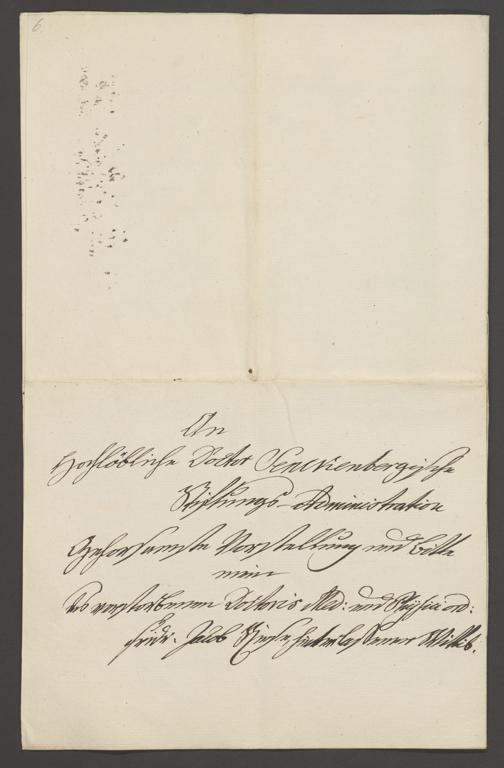 6
An
Hochlöbliche Doctor Senckenbergische
Stiftungs-Administration
Gehorsamste Vorstellung und Bitte
mein
des verstorbenen Doctoris Med: und Physici ord:
Fridr. Jacob hinterlassener Wittib.